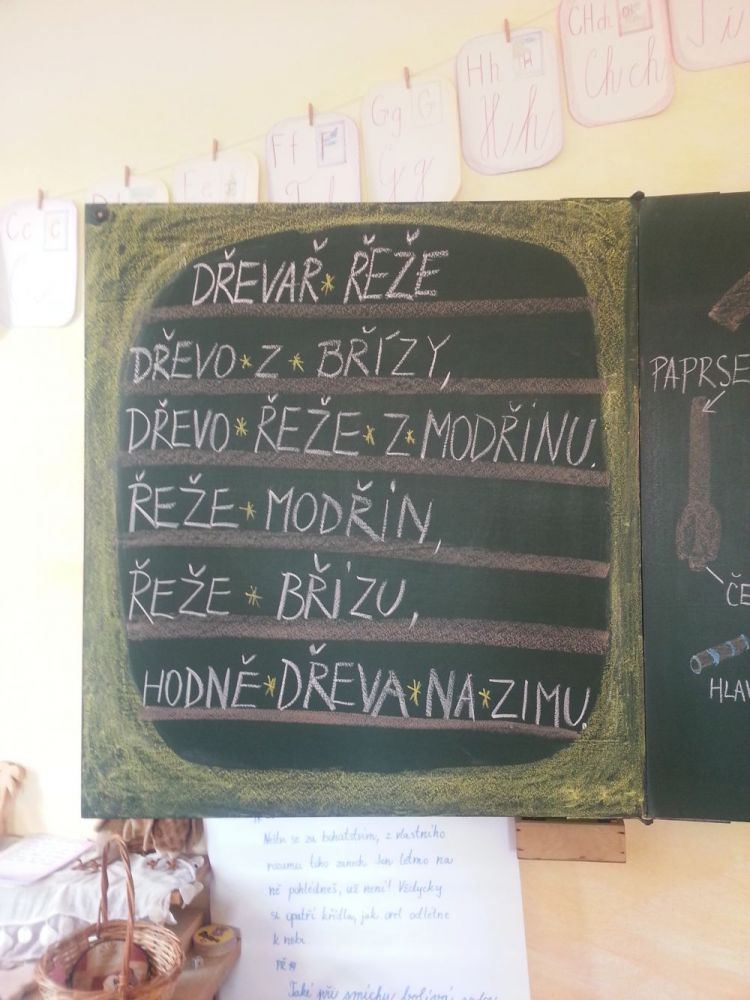 Cc C
Ff F
Gg G
Gg
Hh H
Hh
CHch CH
Ch ch
DŘEVAŘ * ŘEŽE
DŘEVO * Z * BŘÍZY,
DŘEVO * ŘEŽE * Z * MODŘÍNU.
ŘEŽE * MODŘÍN,
ŘEŽE * BŘÍZU,
HODNĚ * DŘEVA * NA * ZIMU.
PAPRSE
ČE
HLAV
Nežeň se za bohatstvím, z vlastního
rozumu toho zanech. Jen letmo na
ně pohlédneš, už není! Vždycky
si opatří křídla, jak orel odlétne
k nebi.
Také při smíchu bolívá srdce